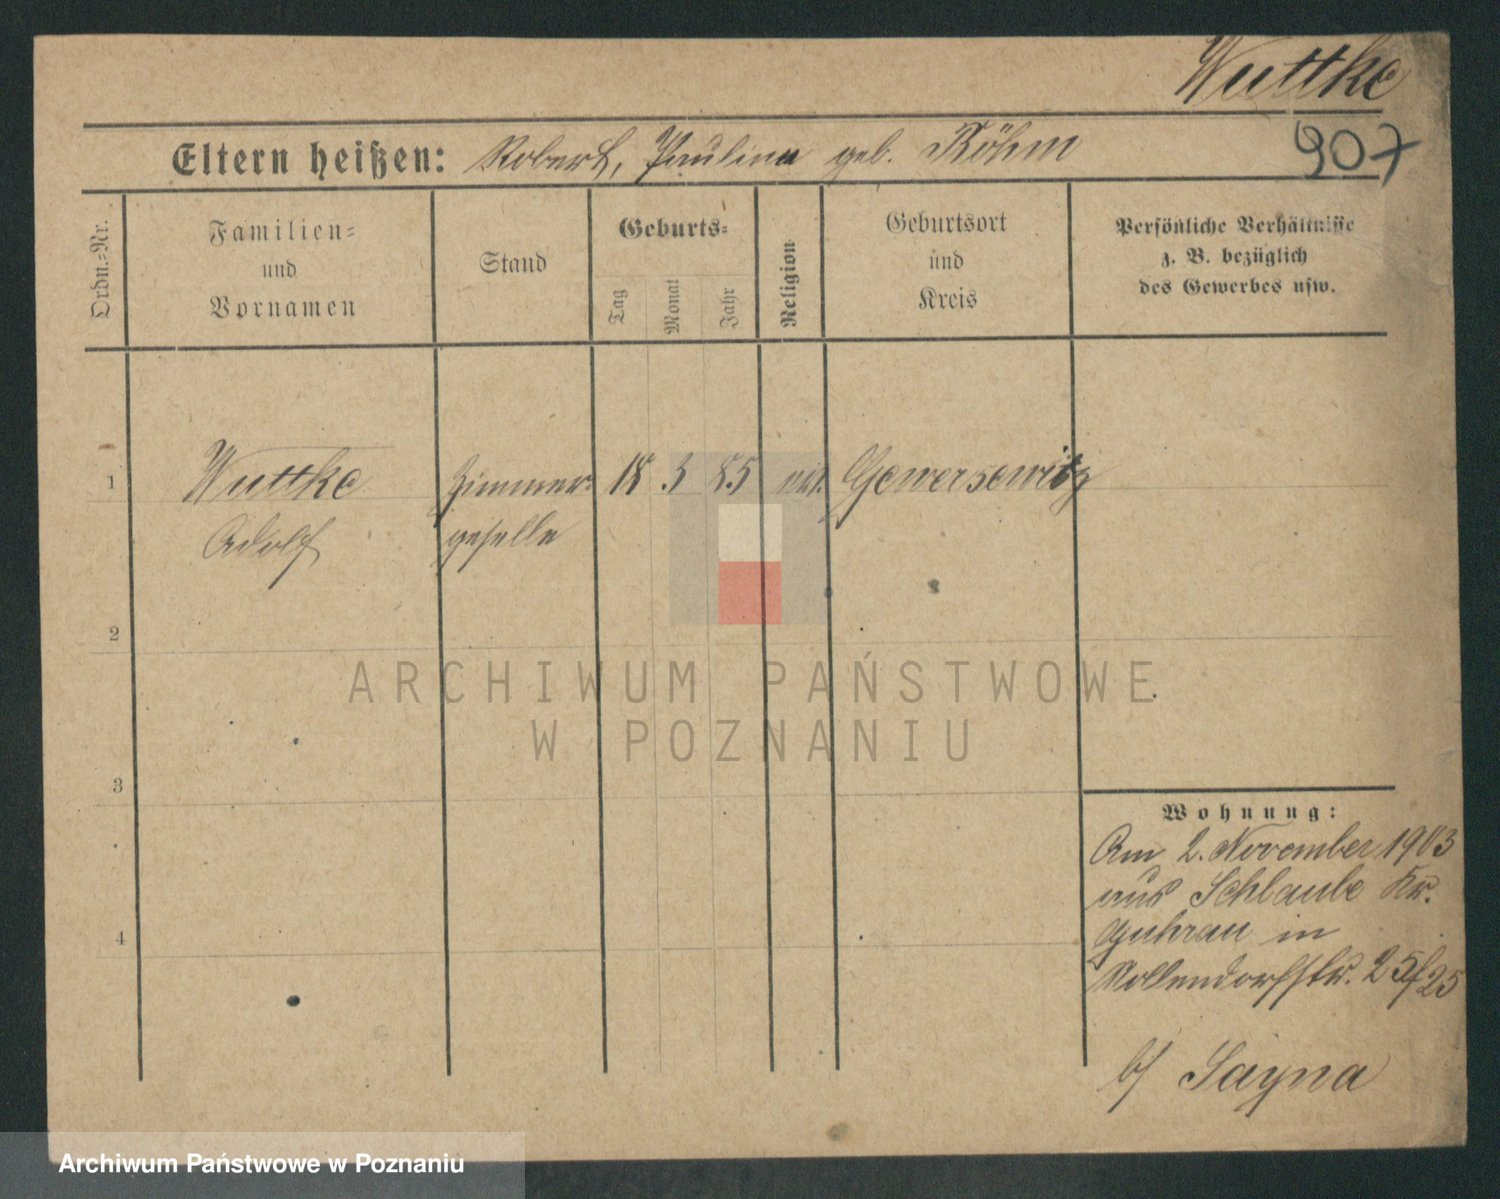 Wuttke
Eltern heißen: Robert, Paulina geb. Böhm
907
Ordn.-Nr.
Familien-
und
Vornamen
Stand
Geburts-
Tag
Monat
Jahr
Religion
Geburtsort
und
Kreis
Persönliche Verhältnisse
z. B. bezüglich
des Gewerbes usw.
1
Wuttke Zimmer- 18 5 85
Adolf geselle
2
ARCHIWUM PAŃSTWOWE
W POZNANIU
3
4
Wohnung:
Am 2. November 1903
aus Schlaube Kr.
Guhrau in
Nollendorfstr. 25/25
b/ Sayna
Archiwum Państwowe w Poznaniu